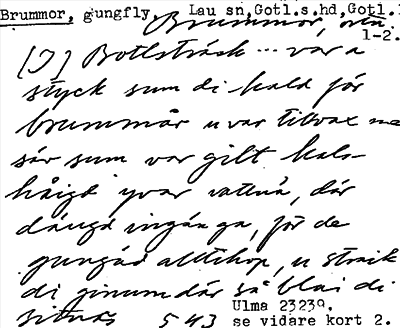 Brummor, gungfly Lau sn,Gotl.s.hd,Gotl.l
Brummor, 
1-2.
[I] Botlsträsk ... var a
styck sum di kald för
brummår u var titvax me
sär sum var gilt hals-
håigd yvar vattnä, där
däugd ingän ga, för de
gungäd alltihop, u straik
di ginum där så blai di
sitnäs 543
Ulma 23239.
se vidare kort 2.